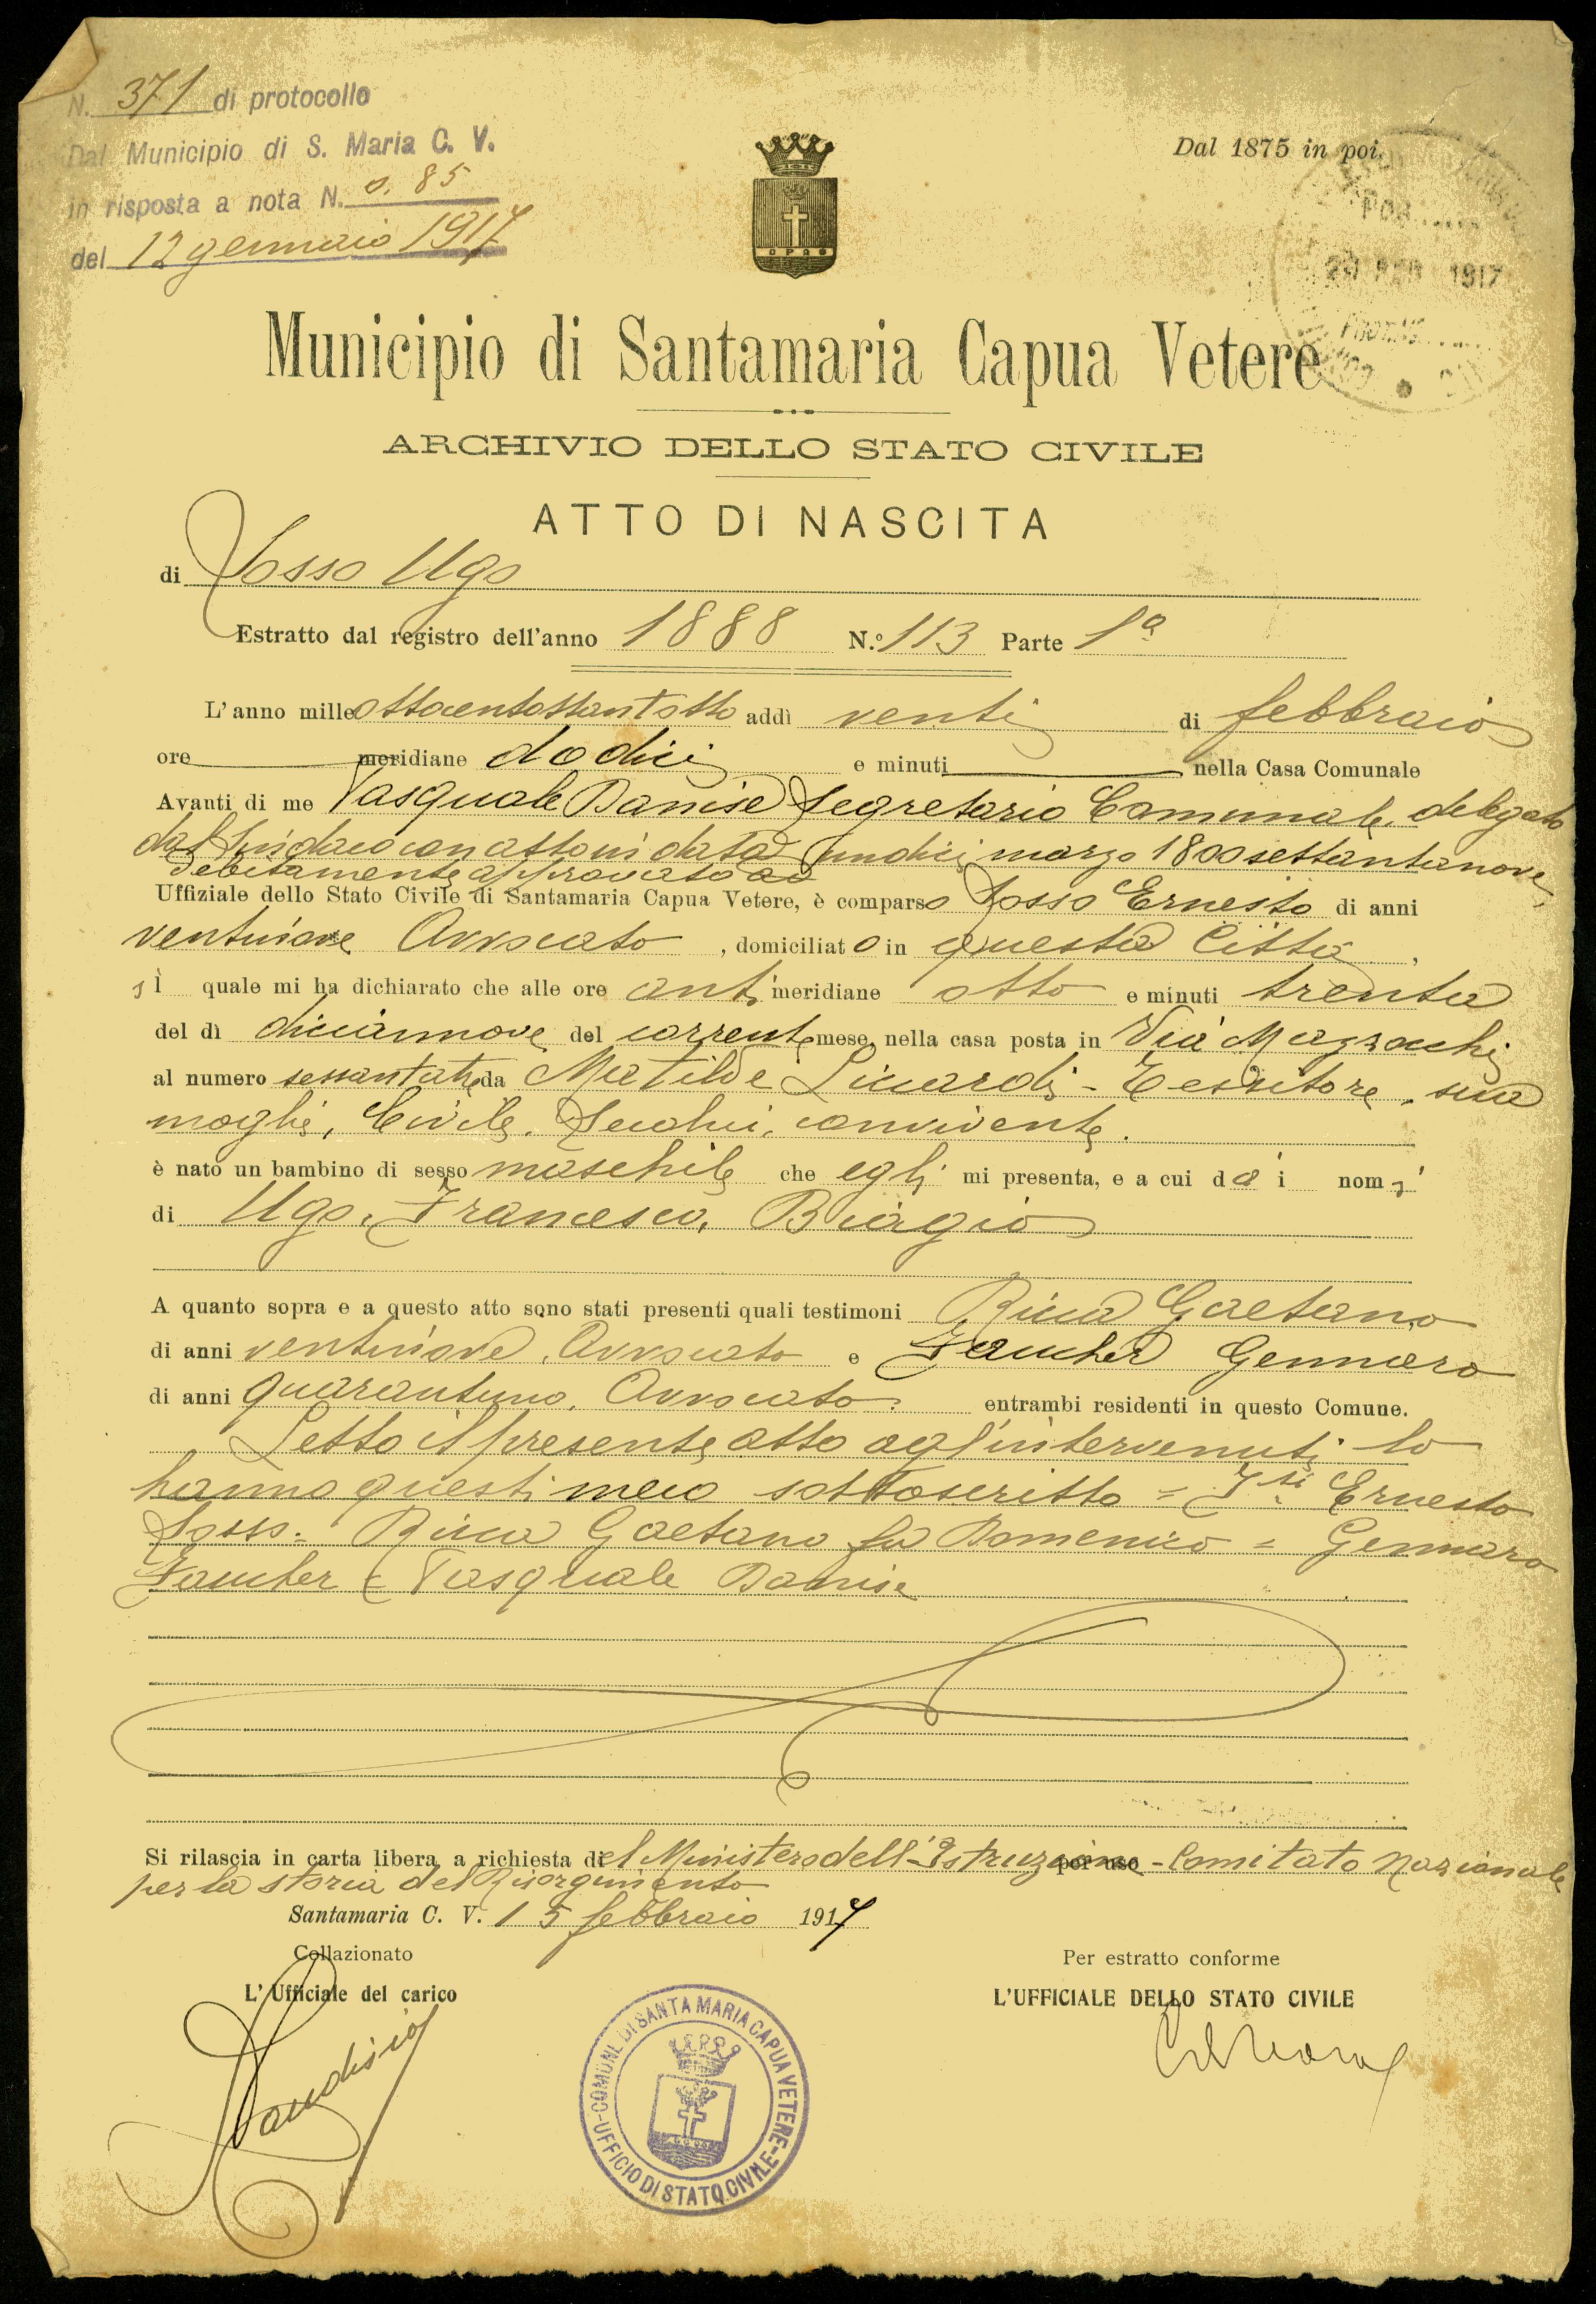 N. 371 di protocollo
Dal Municipio di S. Maria C. V.
in risposta a nota N. 0. 85
del 12 gennaio 1917
Dal 1875 in poi.
1917
OPRS
Municipio di Santamaria Capua Vetere
ARCHIVIO DELLO STATO CIVILE
ATTO DI NASCITA
di Sosso Ugo
Estratto dal registro dell'anno 1888 N.º 113 Parte 1ª
L'anno mille ottocentottantotto addì venti di febbraio
ore meridiane dodici e minuti nella Casa Comunale
Avanti di me Pasquale Danise Segretario Comunale, delegato
dal Sindaco con atto in data undici marzo 1800settantanove,
debitamente approvato
Uffiziale dello Stato Civile di Santamaria Capua Vetere, è comparso Sosso Ernesto di anni
ventinove Avvocato, domiciliato in questa Città,
il quale mi ha dichiarato che alle ore anti meridiane otto e minuti trenta
del dì diciannove del corrente mese, nella casa posta in Via Mazzocchi
al numero sessantatre da Matilde Liccardi - Tessitore, sua
moglie, Civile, seco lui convivente.
è nato un bambino di sesso maschile che egli mi presenta, e a cui dà i nomi
di Ugo, Francesco, Biagio
A quanto sopra e a questo atto sono stati presenti quali testimoni Ricca Gaetano
di anni ventinove, Avvocato e Faucher Gennaro
di anni quarantuno, Avvocato, entrambi residenti in questo Comune.
Letto il presente atto agl'intervenuti lo
hanno questi meco sottoscritto = Fti Ernesto
Sosso = Ricca Gaetano fu Domenico = Gennaro
Faucher = Pasquale Danise
Si rilascia in carta libera a richiesta del Ministero dell'Istruzione per uso - Comitato Nazionale
per la storia del Risorgimento
Santamaria C. V. 15 febbraio 1917
Collazionato
L'Ufficiale del carico
Per estratto conforme
L'UFFICIALE DELLO STATO CIVILE
COMUNE DI SANTA MARIA CAPUA VETERE - UFFICIO DI STATO CIVILE -